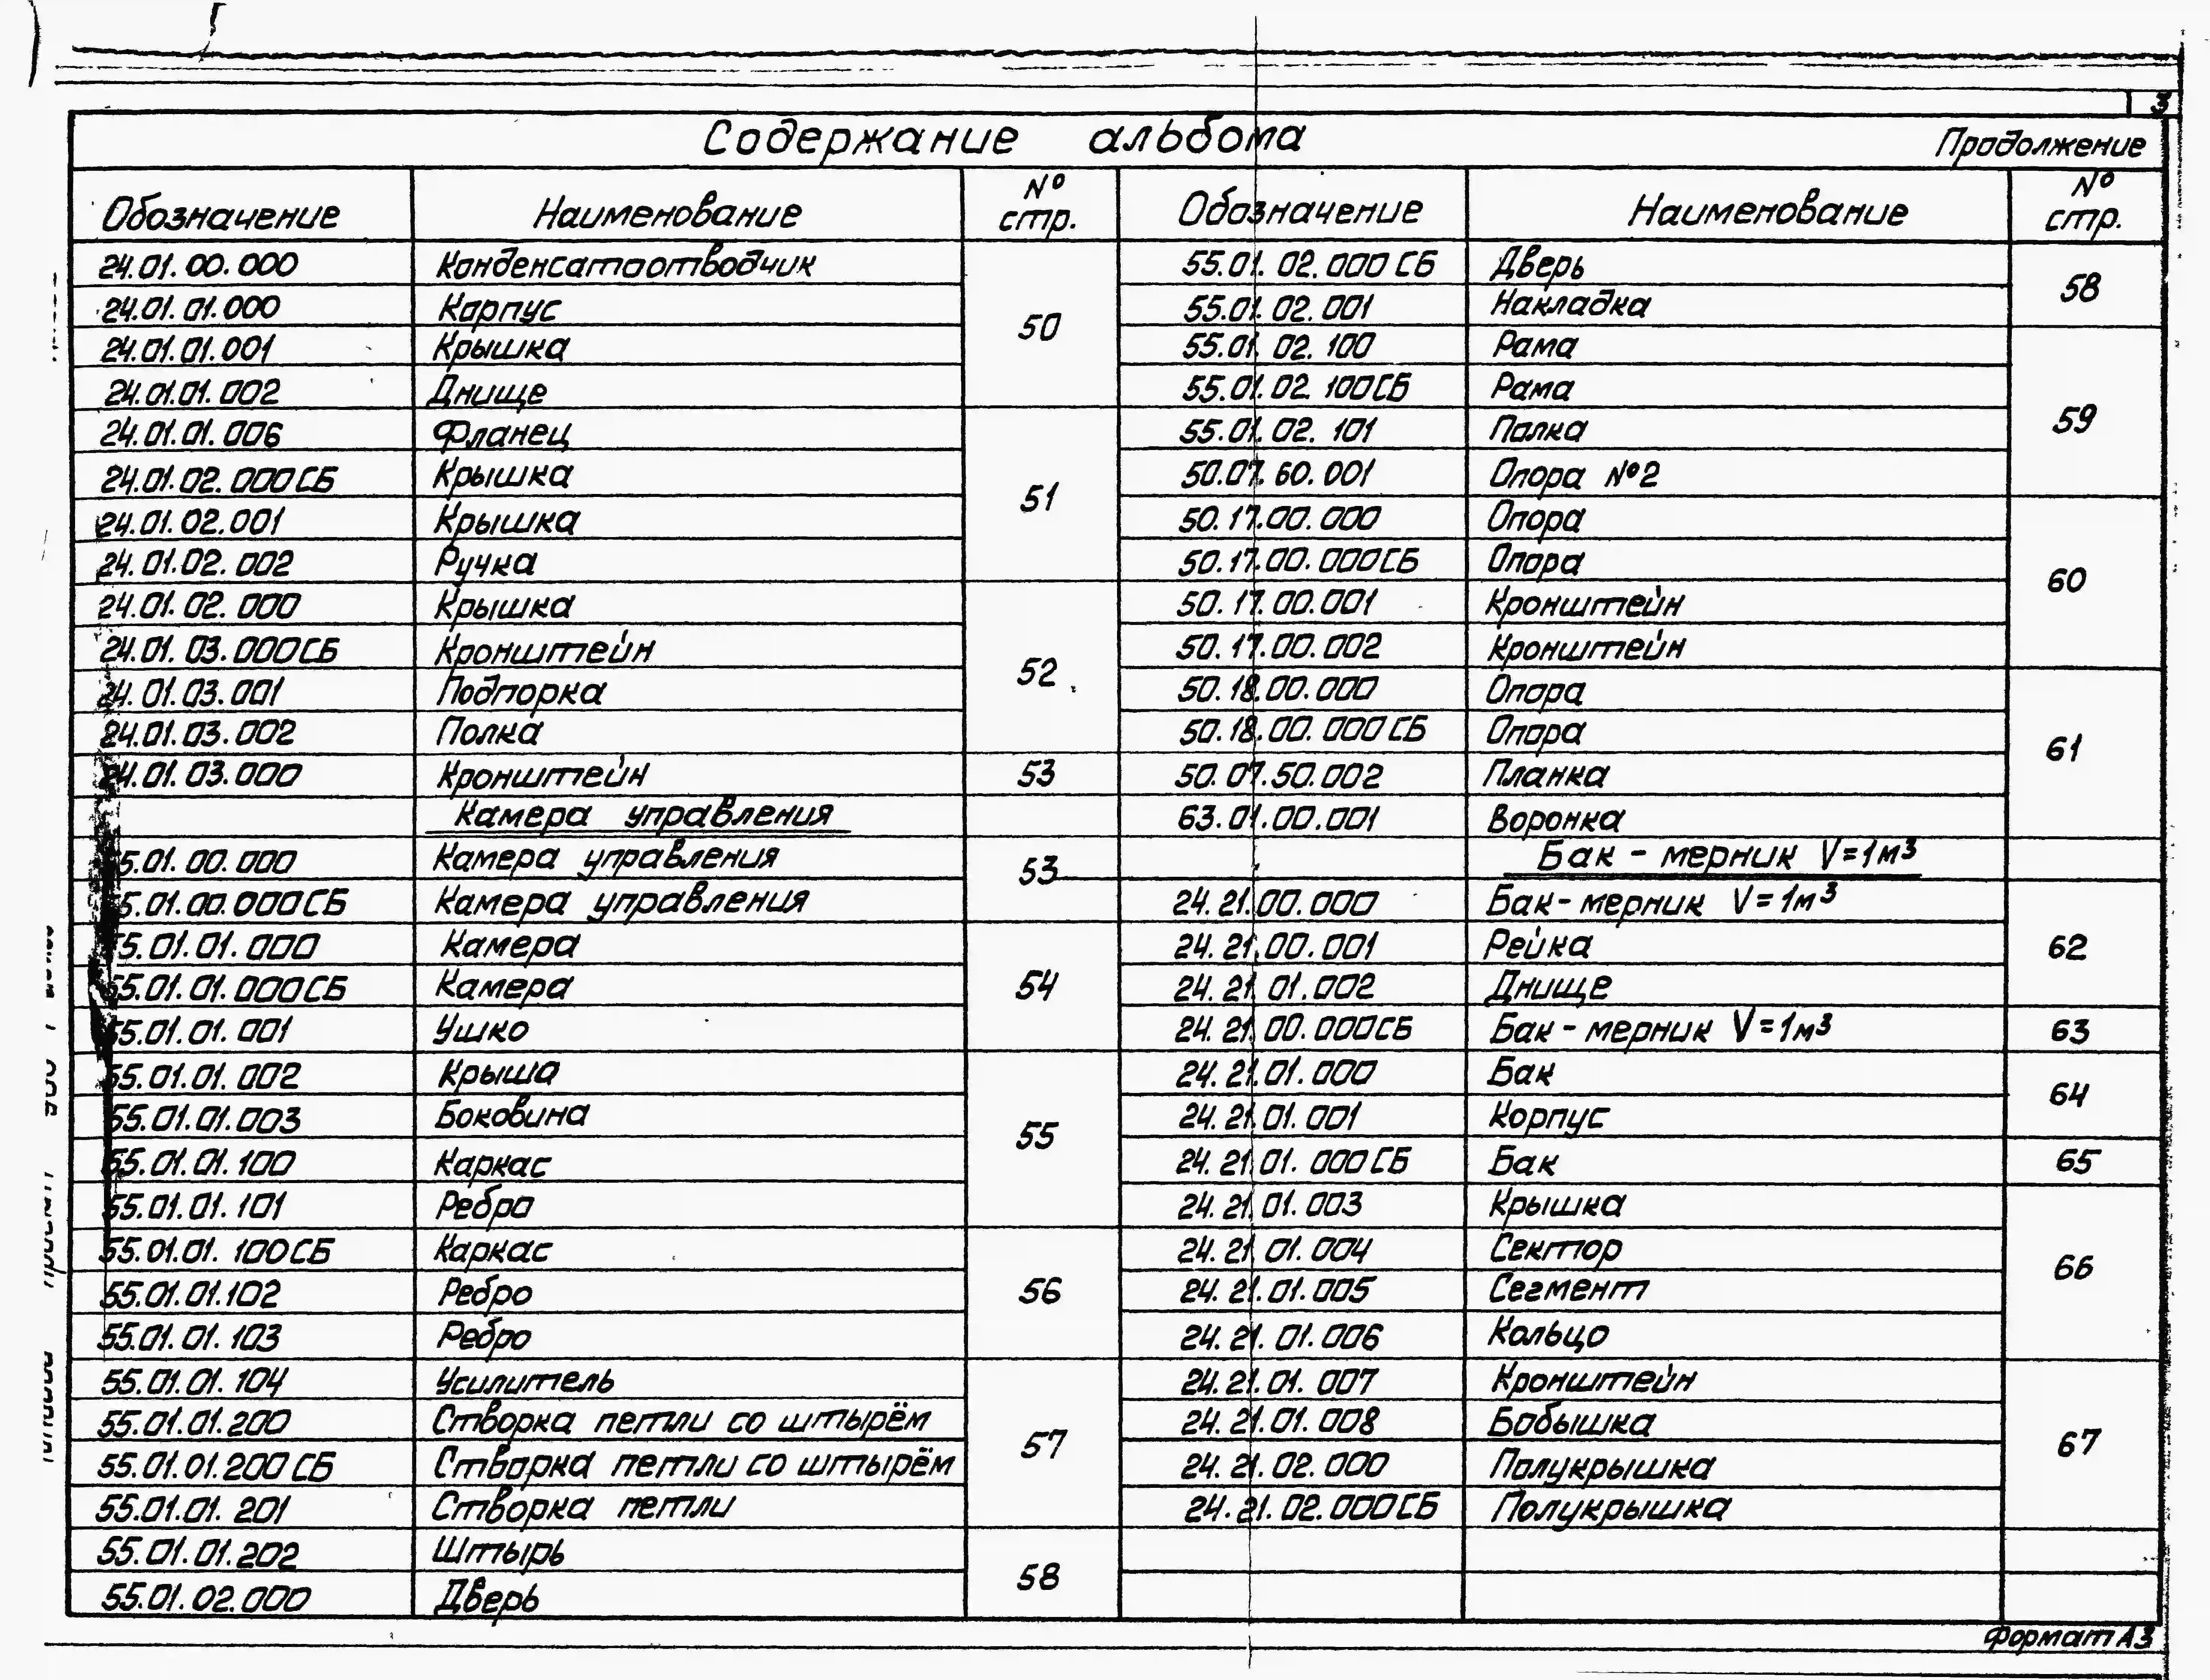 3
Содержание альбома
Продолжение
Обозначение Наименование № стр. Обозначение Наименование № стр.
24.01.00.000 Конденсатоотводчик 55.01.02.000СБ Дверь
24.01.01.000 Корпус 50 55.01.02.001 Накладка 58
24.01.01.001 Крышка 55.01.02.100 Рама
24.01.01.002 Днище 55.01.02.100СБ Рама
24.01.01.006 Фланец 55.01.02.101 Полка 59
24.01.02.000СБ Крышка 51 50.07.60.001 Опора №2
24.01.02.001 Крышка 50.17.00.000 Опора
24.01.02.002 Ручка 50.17.00.000СБ Опора 60
24.01.02.000 Крышка 50.17.00.001 Кронштейн
24.01.03.000СБ Кронштейн 52 50.17.00.002 Кронштейн
24.01.03.001 Подпорка 50.18.00.000 Опора
24.01.03.002 Полка 50.18.00.000СБ Опора 61
24.01.03.000 Кронштейн 53 50.07.50.002 Планка
Камера управления 63.01.00.001 Воронка
55.01.00.000 Камера управления 53 Бак-мерник V=1м³
55.01.00.000СБ Камера управления 24.21.00.000 Бак-мерник V=1м³
55.01.01.000 Камера 24.21.00.001 Рейка 62
55.01.01.000СБ Камера 54 24.21.01.002 Днище
55.01.01.001 Ушко 24.21.00.000СБ Бак-мерник V=1м³ 63
55.01.01.002 Крыша 24.21.01.000 Бак 64
55.01.01.003 Боковина 55 24.21.01.001 Корпус
55.01.01.100 Каркас 24.21.01.000СБ Бак 65
55.01.01.101 Ребро 24.21.01.003 Крышка
55.01.01.100СБ Каркас 24.21.01.004 Сектор 66
55.01.01.102 Ребро 56 24.21.01.005 Сегмент
55.01.01.103 Ребро 24.21.01.006 Кольцо
55.01.01.104 Усилитель 24.21.01.007 Кронштейн
55.01.01.200 Створка петли со штырём 57 24.21.01.008 Бобышка 67
55.01.01.200СБ Створка петли со штырём 24.21.02.000 Полукрышка
55.01.01.201 Створка петли 24.21.02.000СБ Полукрышка
55.01.01.202 Штырь 58
55.01.02.000 Дверь
Формат А3